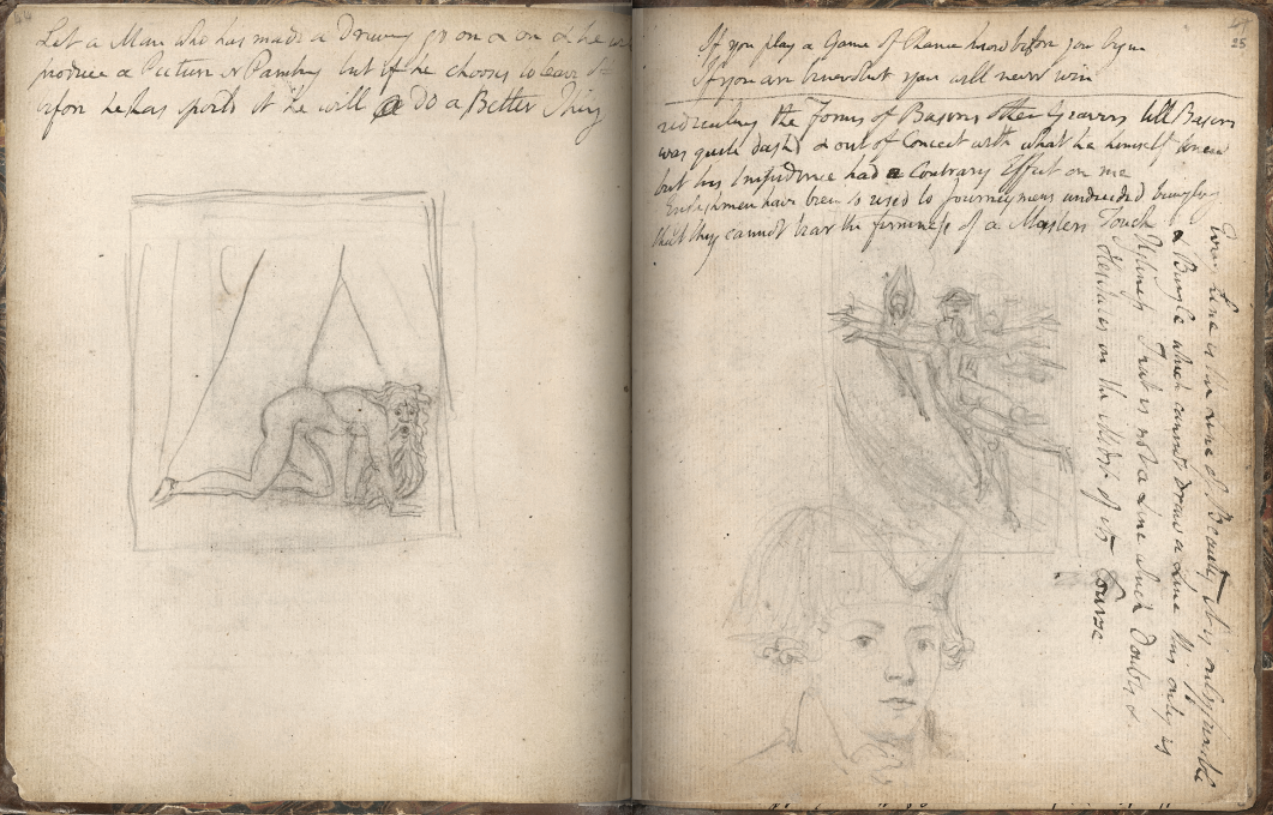 44
Let a Man who has made a Drawing go on & on & he
produce a Picture or Painting but if he chooses to leave it
before he has spoild it he will do a Better Thing
47
25
If you play a Game of Chance know before you begin
If you are benevolent you will never win
rediculing the Forms of Basires other Gravers till Basire
was quite dashd & out of Conceit with what he himself knew
but his Impudence had a Contrary Effect on me
Englishmen have been so used to Journeymens undecided bungling
that they cannot bear the firmness of a Masters Touch
Every Line is the Line of Beauty it is only fumble
& Bungle which cannot Draw a Line this only is
Ugliness That is not a Line which Doubts &
Hesitates in the Midst of its Course